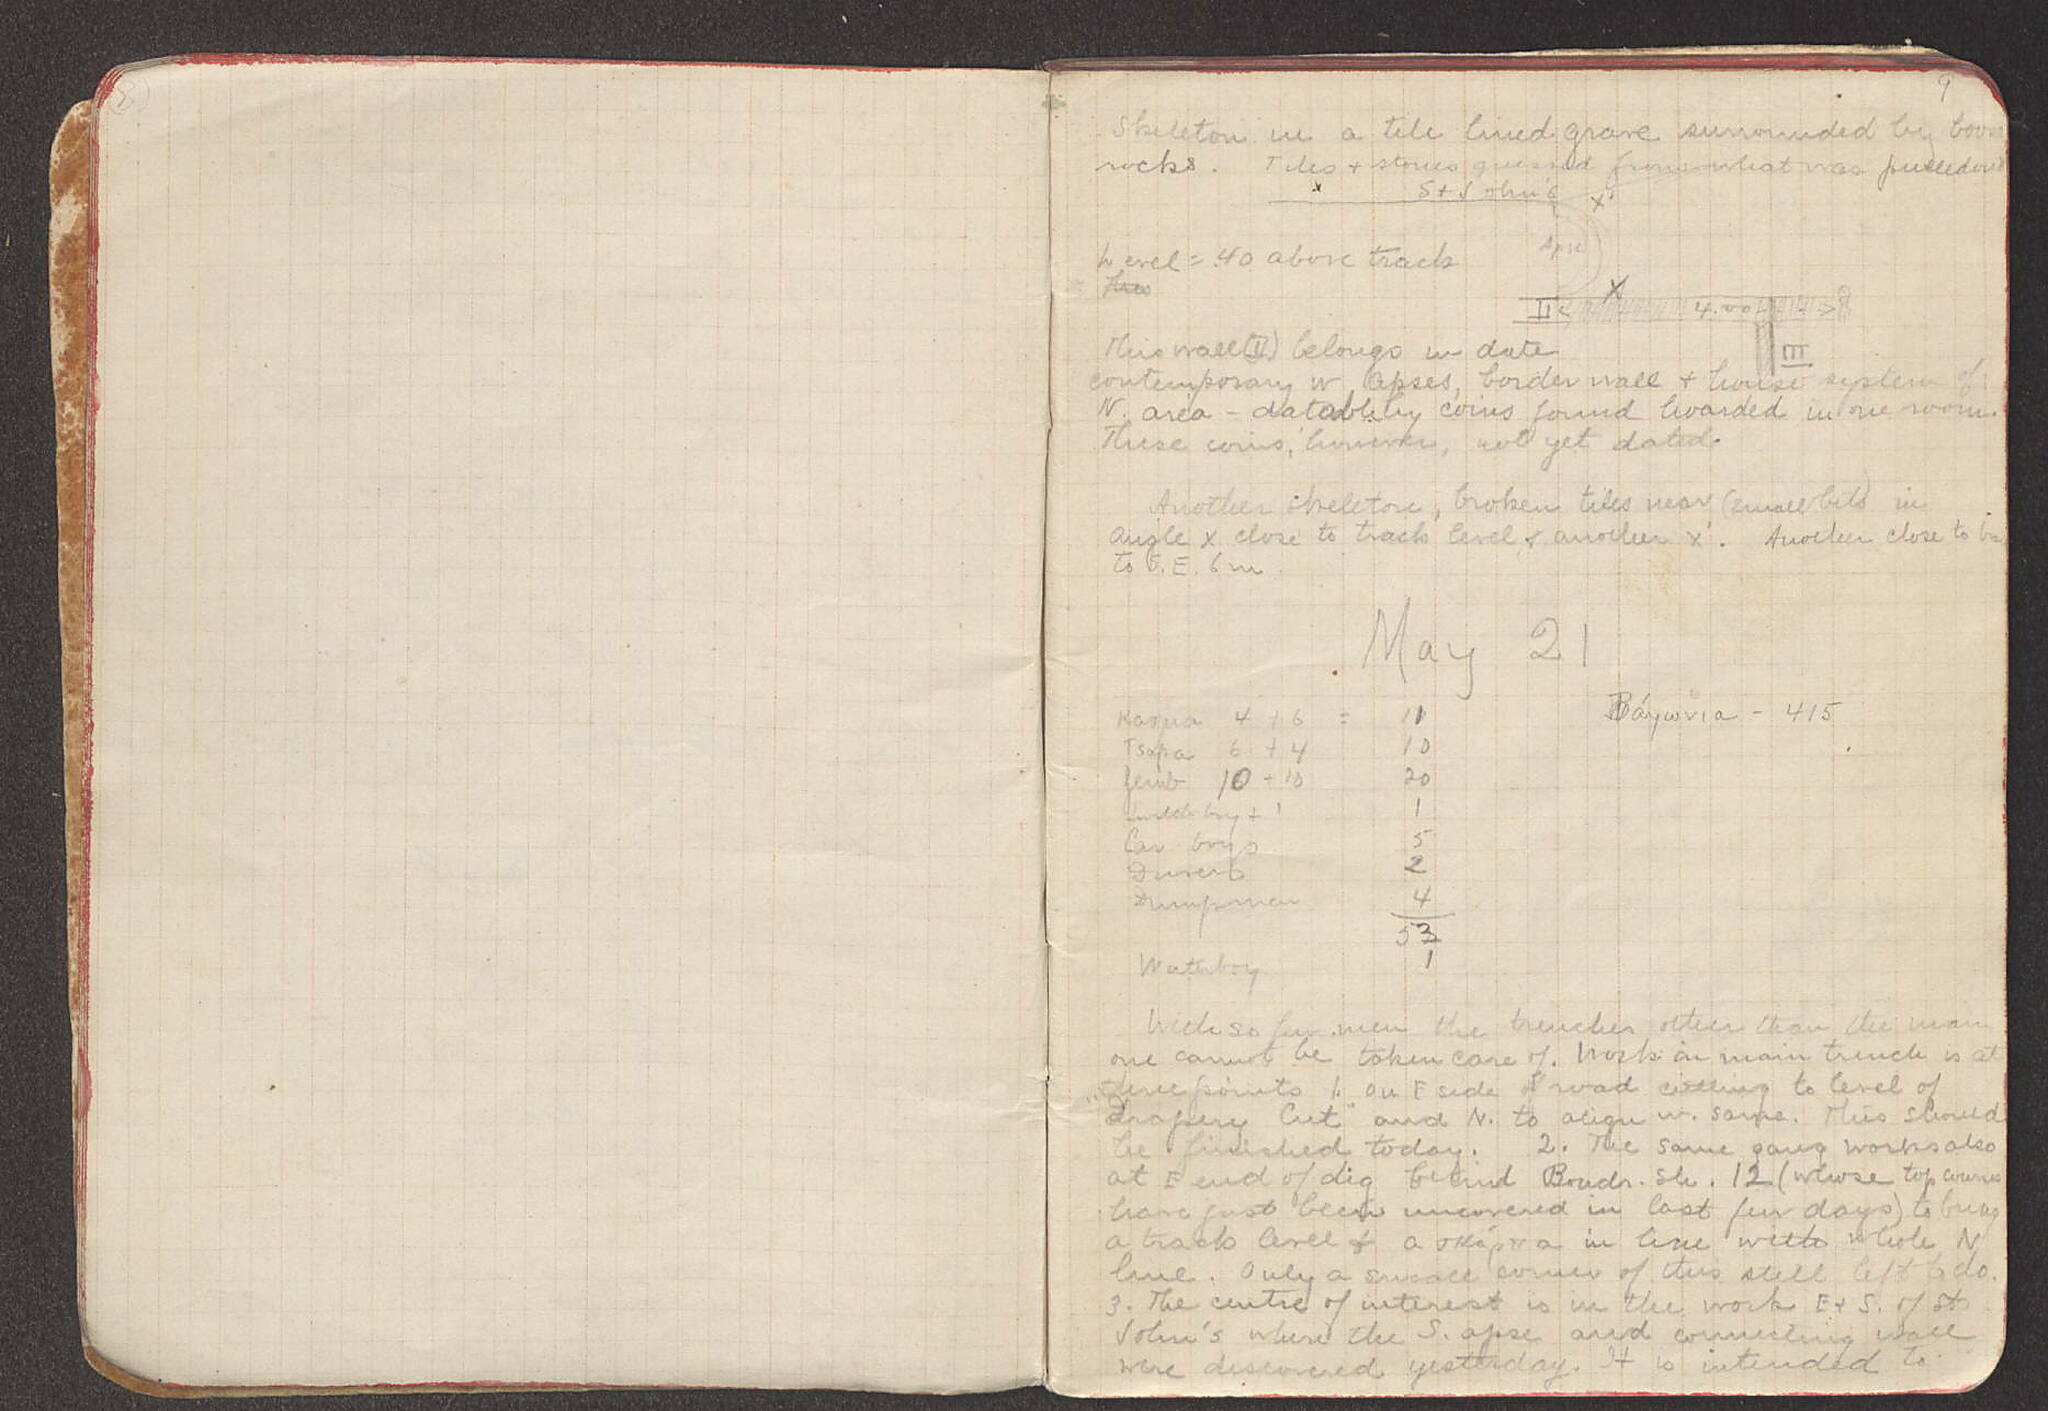 (8)
9
Skeleton in a tile lined grave surrounded by loose
rocks. Tiles + stones guessed from what was pulled out
St John's
x'
Apse
Level = .40 above track
x
II 4.00
III
This wall (II) belongs in date
contemporary w. apses, border wall + house system of
N. area - datable by coins found hoarded in one room.
These coins, however, not yet dated.
Another skeleton, broken tiles near (small bits) in
angle x close to track level & another x'. Another close to
to S.E. 6 m.
May 21
Βάγωνια - 415
Kasma 4 + 6 = 11
Tsapa 6 + 4 10
Zemb 10 + 10 20
boy + 1 1
Car boys 5
2
Dumpmen 4
53
Waterboy 1
With so few men the trenches other than the main
one cannot be taken care of. Work in main trench is at
three points 1. On E side of road cutting to level of
"Drapery Cut" and N. to align w. same. This should
be finished today. 2. The same gang works also
at E end of dig behind Boudr. Sh. 12 (whose top courses
have just been uncovered in last few days) to bring
a track level & a σκάρπα in line with whole N
line. Only a small corner of this still left to do.
3. The centre of interest is in the work E + S. of St
John's where the S. apse and connecting wall
were discovered yesterday. It is intended to